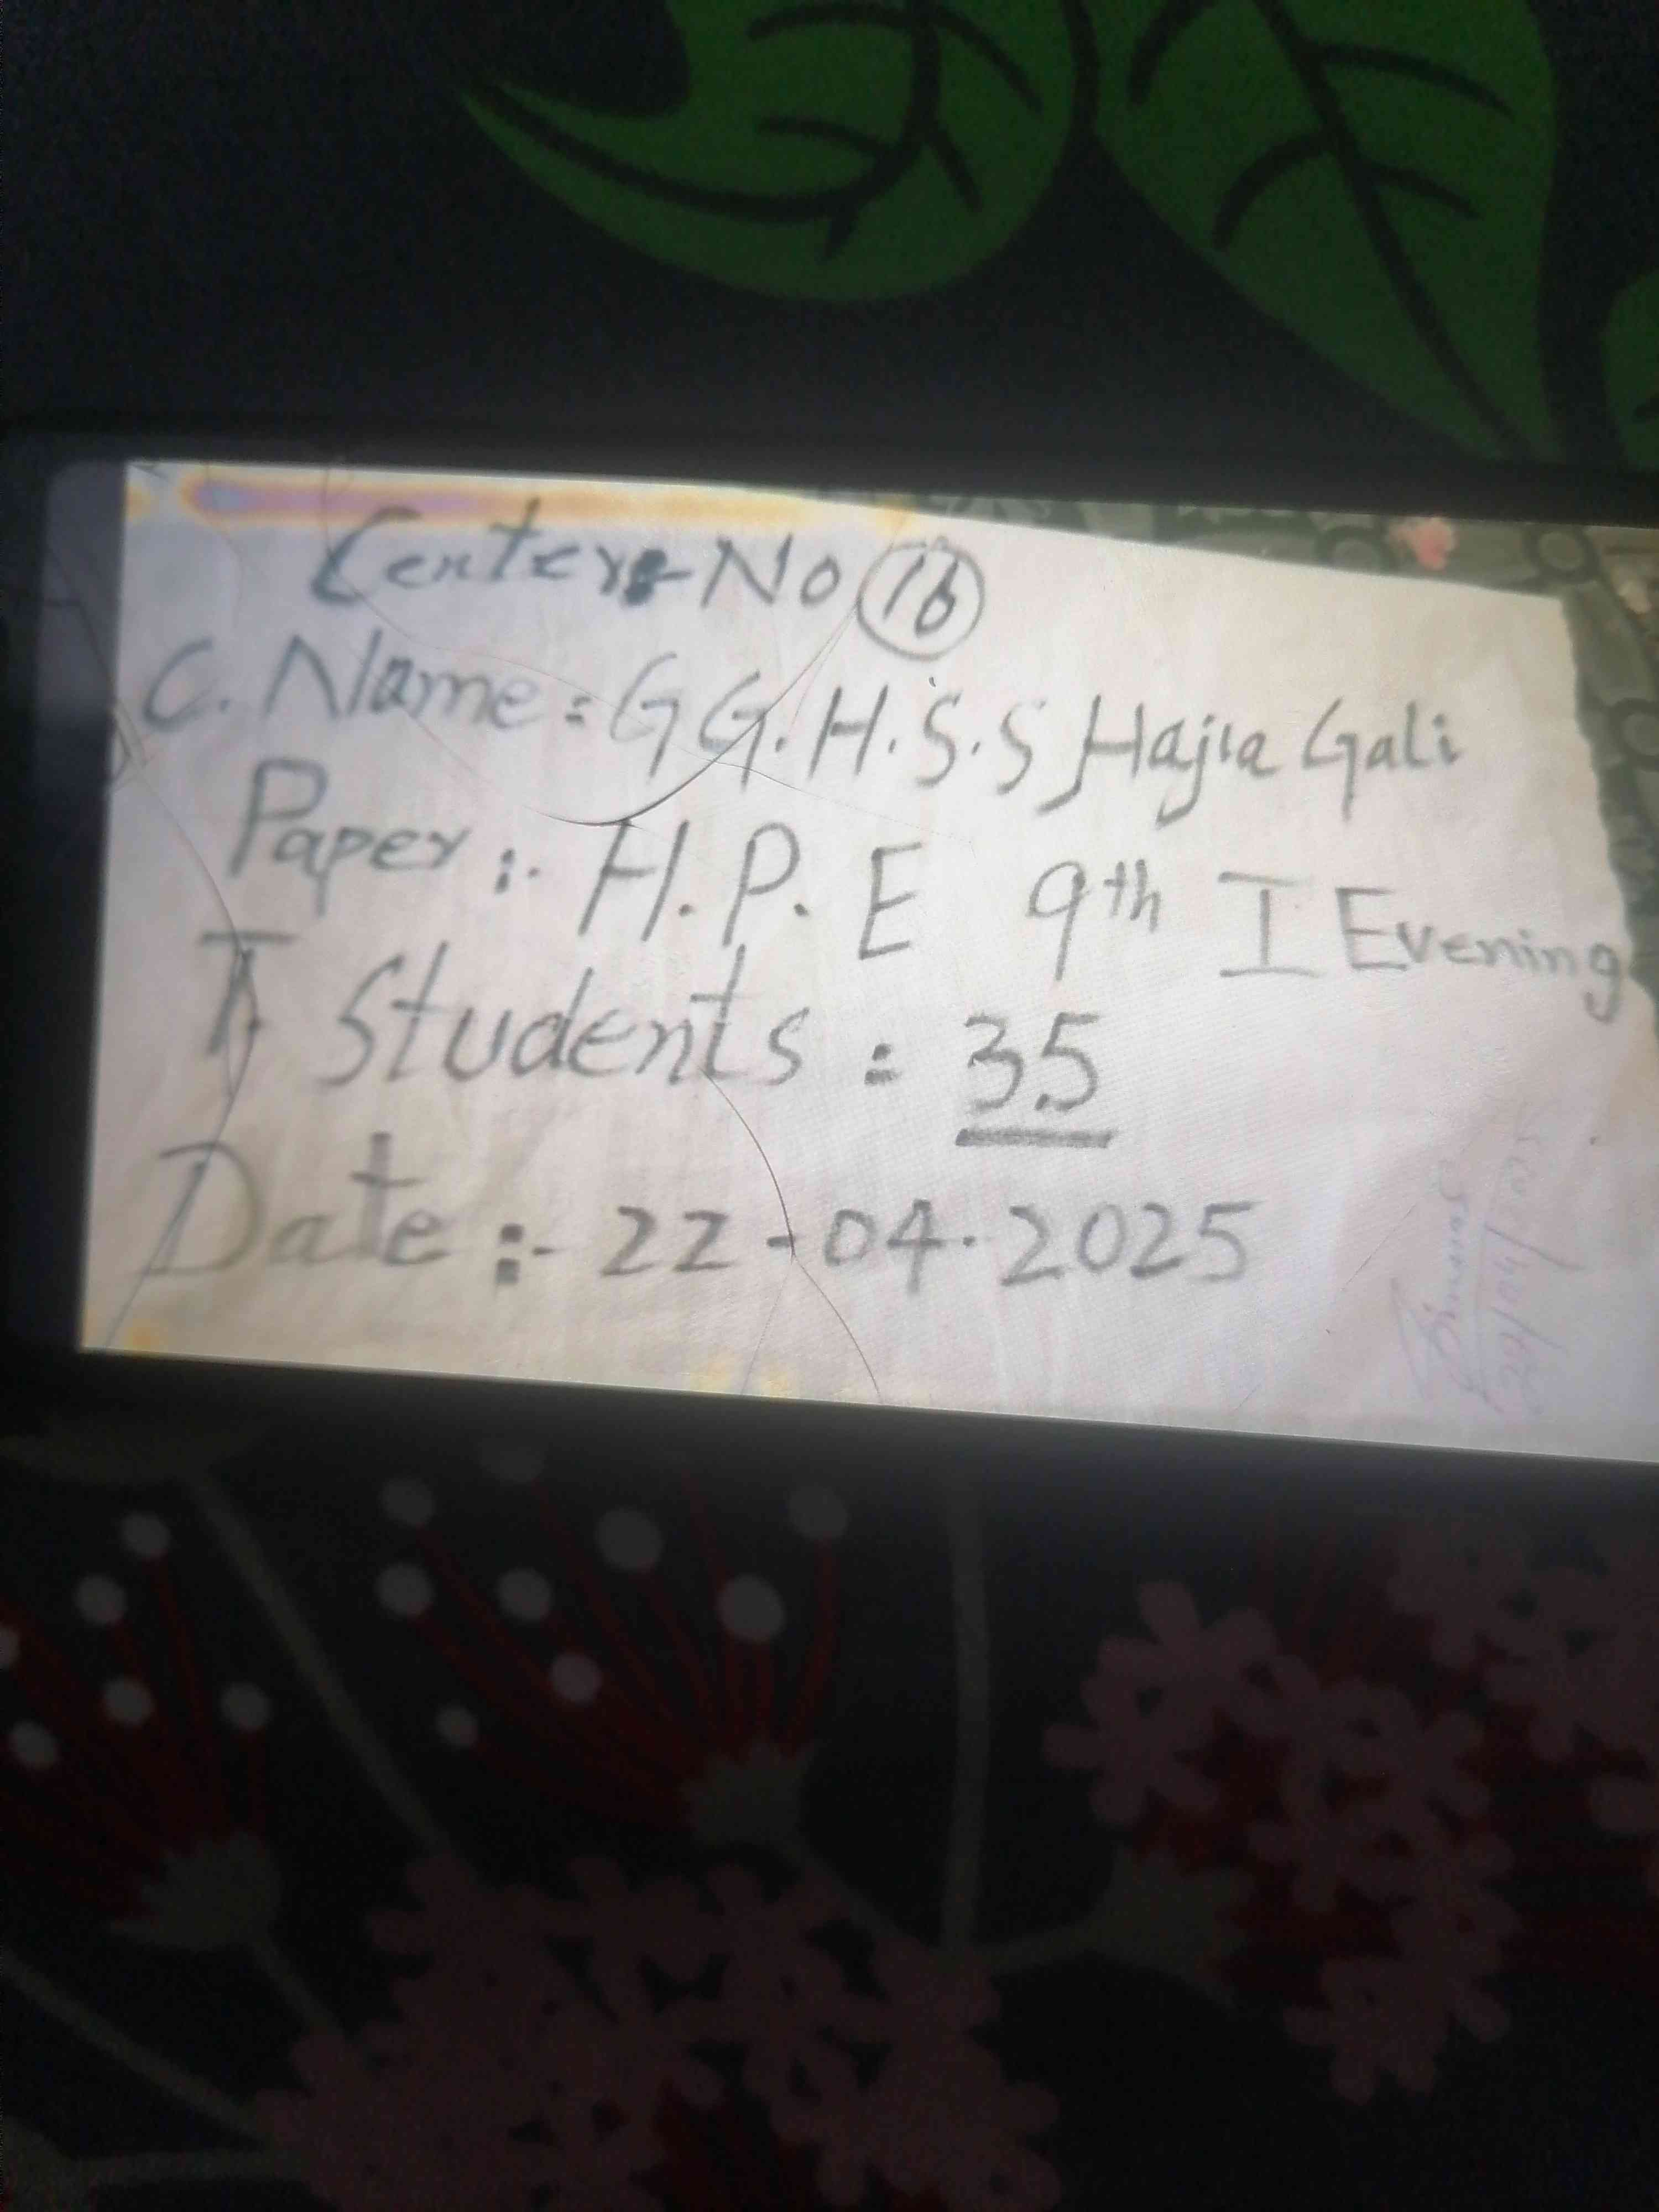 Center No 16
C. Name = G G. H. S. S Hajia Gali
Paper :- H. P. E 9th I Evening
T. Students = 35
Date :- 22-04-2025